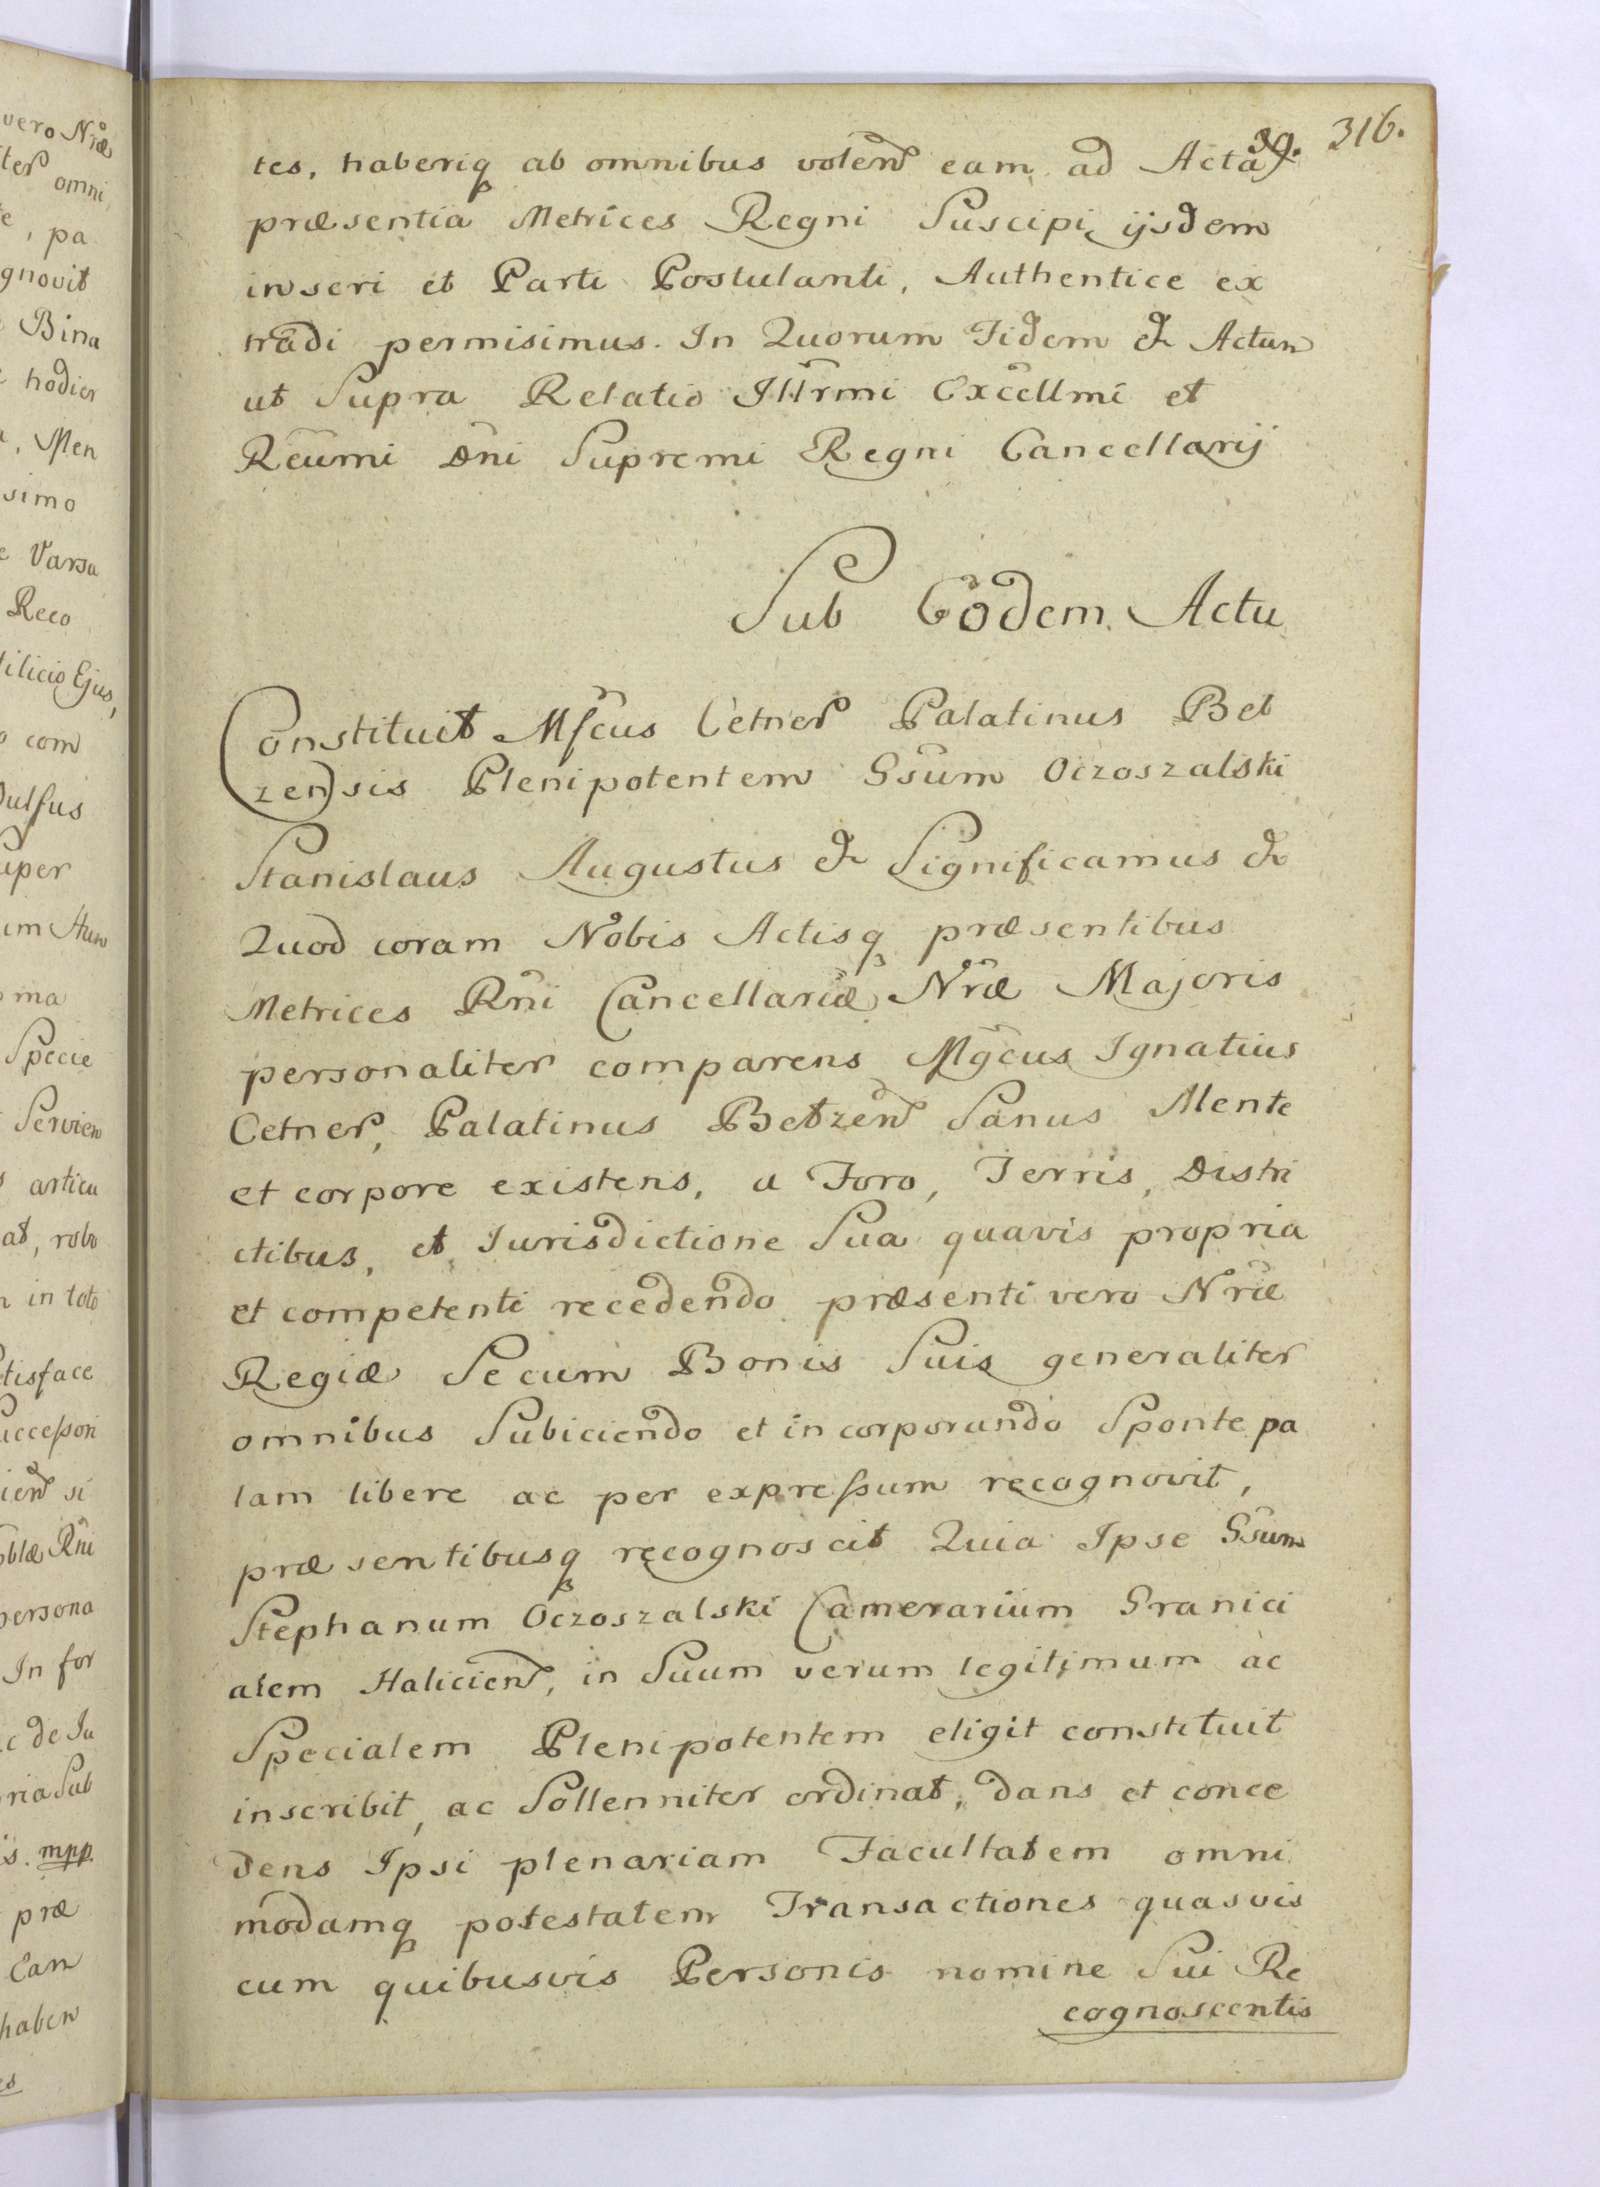 39. 316.
tes, haberiq ab omnibus volen eam ad Acta
præsentia Metrices Regni Suscipi, ijsdem
inseri et Parti Postulanti, Authentice ex
tradi permisimus. In Quorum Fidem & Actum
ut Supra Relatio Illrmi Excellmi et
Reumi Dni Supremi Regni Cancellarij
Sub Eodem Actu
Constituit Mfcus Cetner Palatinus Bel
zensis Plenipotentem Gsum Oczoszalski
Stanislaus Augustus & Significamus &
Quod coram Nobis Actisq præsentibus
Metrices Rni Cancellariæ Nræ Majoris
personaliter comparens Mgcus Ignatius
Cetner, Palatinus Betzen Sanus Mente
et corpore existens, a Foro, Terris, Distri
ctibus, et Jurisdictione Sua quavis propria
et competenti recedendo præsenti vero Nræ
Regiæ Se cum Bonis Suis generaliter
omnibus Subiciendo et in corporando Sponte pa
lam libere ac per expressum recognovit,
præsentibusq recognoscit Quia Ipse Gsum
Stephanum Oczoszalski Camerarium Granici
alem Halicien, in Suum verum legitimum ac
Specialem Plenipotentem eligit constituit
inscribit, ac Sollenniter ordinat, dans et conce
dens Ipsi plenariam Facultatem omni
modamq potestatem Transactiones quasvis
cum quibusvis Personis nomine Sui Re
cognoscentis